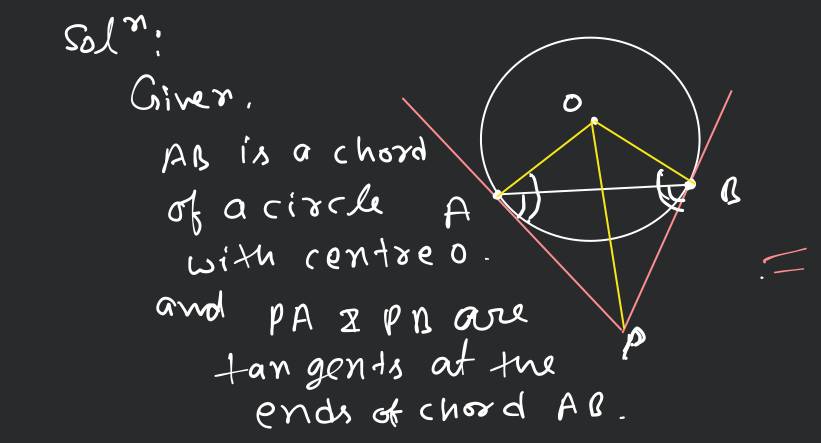 Solⁿ:
Given,
AB is a chord
of a circle
with centre O.
and PA & PB are
tangents at the
ends of chord AB.
O
A
B
P